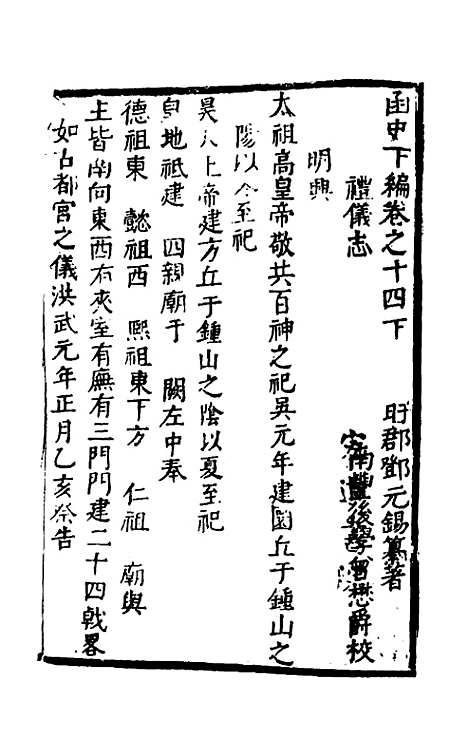 函史下編卷之十四下
旴郡鄧元錫纂著
南豐後學曾懋爵校
禮儀志
明興
太祖高皇帝敬共百神之祀吳元年建圜丘于鍾山之
陽以冬至祀
昊天上帝建方丘于鍾山之陰以夏至祀
皇地祇建 四親廟于 闕左中奉
德祖東 懿祖西 熙祖東下方 仁祖 廟與
主皆南向東西有夾室有廡有三門門建二十四戟畧
如古都宮之儀洪武元年正月乙亥祭告